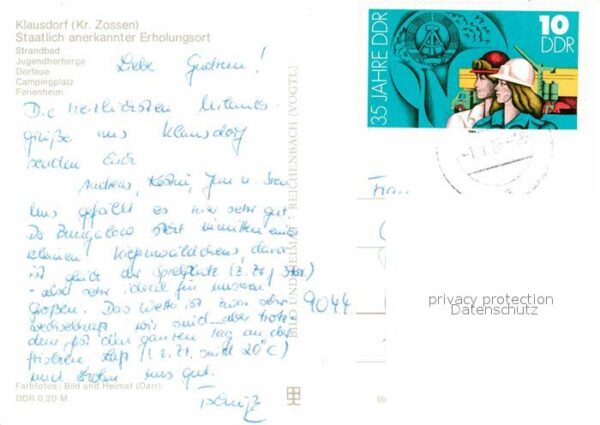 Klausdorf (Kr. Zossen)
Staatlich anerkannter Erholungsort
Strandbad
Jugendherberge
Dorfaue
Campingplatz
Ferienheim
Liebe Gudrun!
Die herzlichsten Urlaubs-
grüße aus Klausdorf
senden Euch
Andreas, Kerstin, u.
Uns gefällt es hier sehr gut.
Der Bungalow steht inmitten eines
kleinen Kiefernwäldchens, davor
ist gleich der Spielplatz (z. Zt.
- also sehr ideal für unseren
Großen. Das Wetter ist zwar sehr
wechselhaft, wir sind aber trotz-
dem fast den ganzen Tag an der
frischen Luft (z. Zt. sind 20°C)
und erholen uns gut.
Farbfotos: Bild und Heimat (Darr)
DDR 0,20 M
BILD UND HEIMAT REICHENBACH (VOGTL)
35 JAHRE DDR
10
DDR
9044
privacy protection
Datenschutz